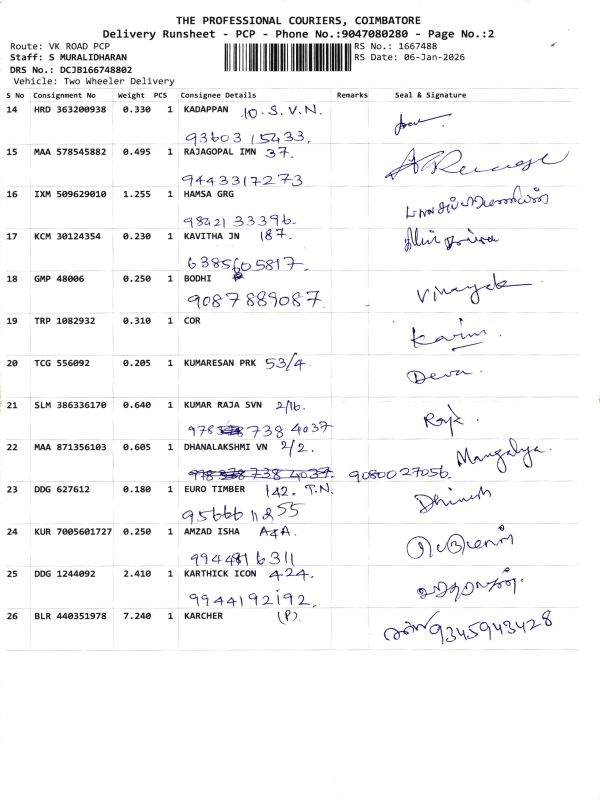 THE PROFESSIONAL COURIERS, COIMBATORE
Delivery Runsheet - PCP - Phone No.:9047080280 - Page No.:2
Route: VK ROAD PCP RS No.: 1667488
Staff: S MURALIDHARAN RS Date: 06-Jan-2026
DRS No.: DCJB166748802
Vehicle: Two Wheeler Delivery
S No Consignment No Weight PCS Consignee Details Remarks Seal & Signature
14 HRD 363200938 0.330 1 KADAPPAN 10. S. V. N.
93603 15433.
15 MAA 578545882 0.495 1 RAJAGOPAL IMN 37.
9443317273
16 IXM 509629010 1.255 1 HAMSA GRG
98421 33396.
17 KCM 30124354 0.230 1 KAVITHA JN 187.
6385605817.
18 GMP 48006 0.250 1 BODHI
9087889087. Vinayak
19 TRP 1082932 0.310 1 COR
Karim.
20 TCG 556092 0.205 1 KUMARESAN PRK 53/4.
Deva.
21 SLM 386336170 0.640 1 KUMAR RAJA SVN 2/16.
978 738 4037
22 MAA 871356103 0.605 1 DHANALAKSHMI VN 2/2.
Mangalya.
738 4037. 9080027056.
23 DDG 627612 0.180 1 EURO TIMBER 142. T.N.
9566611255 Dhinesh
24 KUR 7005601727 0.250 1 AMZAD ISHA A&A.
9944816311
25 DDG 1244092 2.410 1 KARTHICK ICON 424.
9944192192.
26 BLR 440351978 7.240 1 KARCHER (P).
9345943428